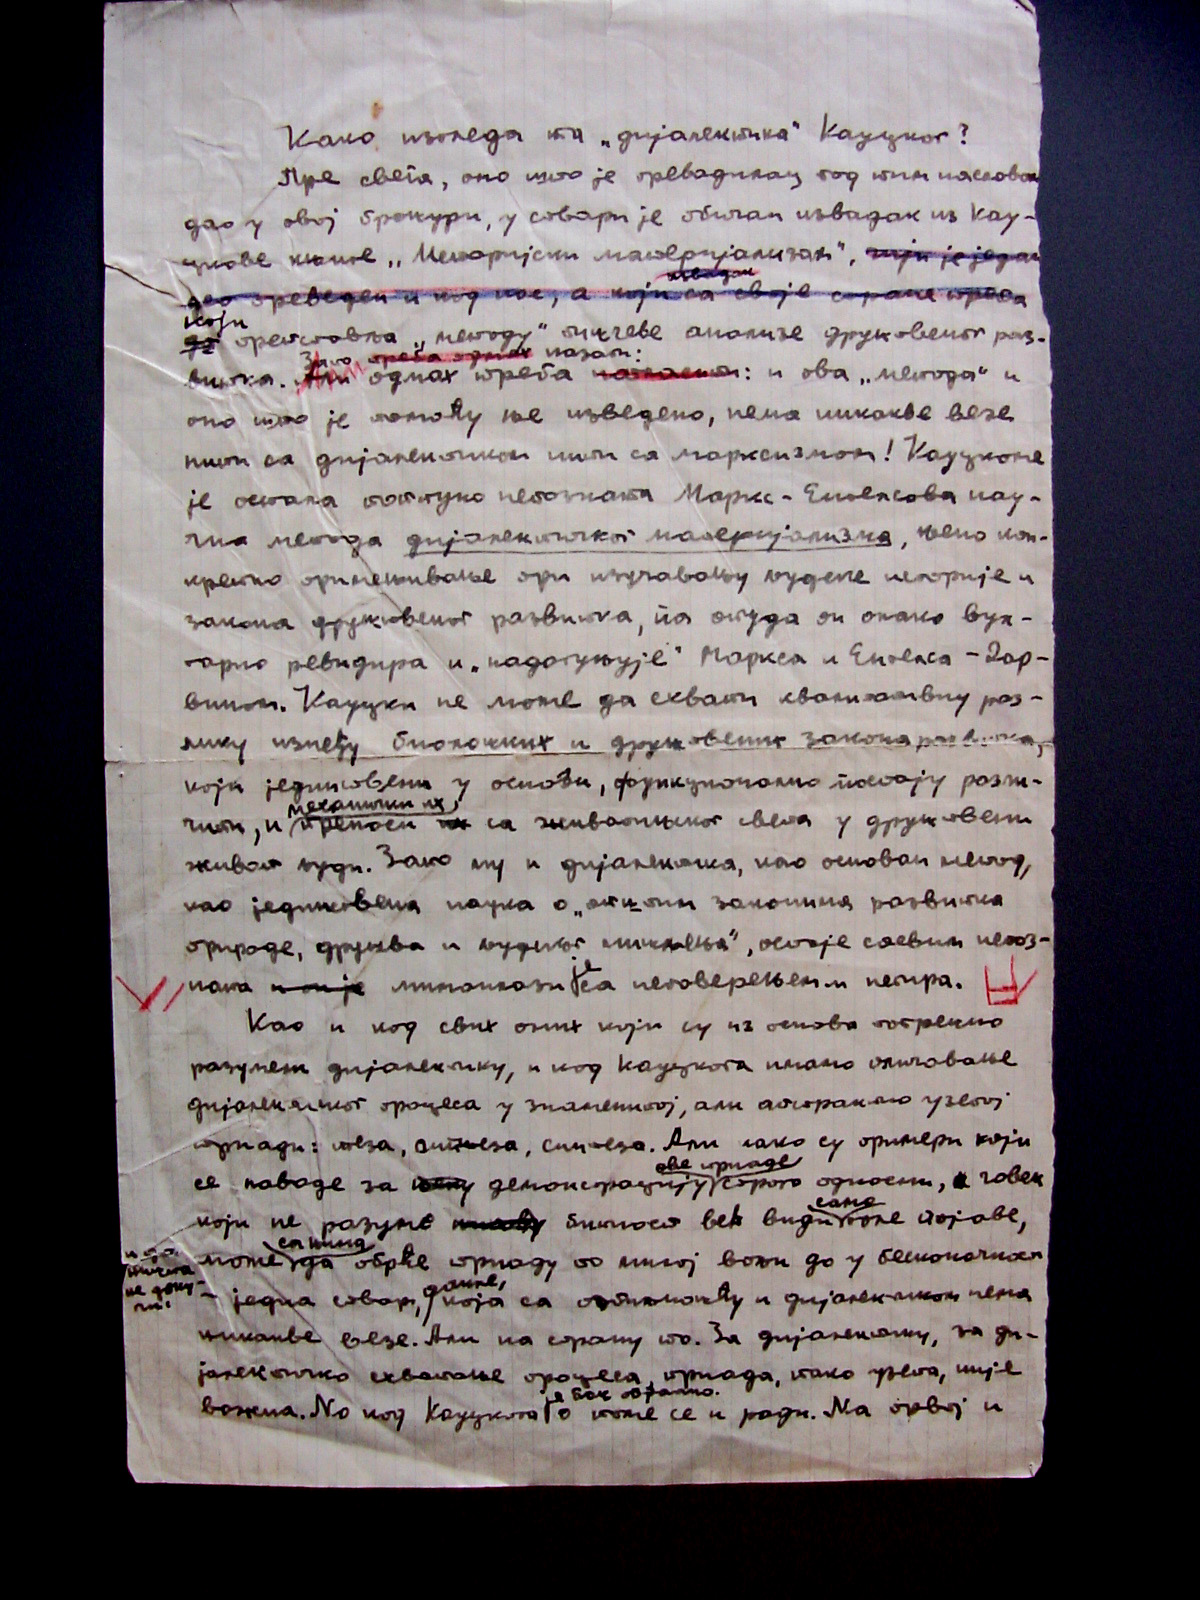 Како изгледа та „дијалектика“ Кауцког?
Пре свега, оно што је преводилац под тим насловом
дао у овој брошури, у ствари је обичан извадак из Кау-
цкове књиге „Историјски материјализам“, чији је један
извадак
део преведен и код нас, а који са своје стране треба
који
да претставља „методу“ његове анализе друштвеног раз-
Зато треба одмах казати:
витка. Али одмах треба : и ова „метода“ и
оно што је помоћу ње изведено, нема никакве везе
нити са дијалектиком нити са марксизмом! Кауцкоме
је остала потпуно непозната Маркс-Енгелсова нау-
чна метода дијалектичког материјализма, њено кон-
кретно примењивање при изучавању људске историје и
закона друштвеног развитка, па отуда он онако вул-
гарно ревидира и „надопуњује“ Маркса и Енгелса – Дар-
вином. Кауцки не може да схвати квалитативну раз-
лику између биолошких и друштвених закона развитка,
који јединствени у основи, функционално постају разли-
механички их
чити, и преноси их са животињског света у друштвени
живот људи. Зато му и дијалектика, као основни метод,
као јединствена наука о „општим законима развитка
природе, друштва и људског мишљења“, остаје сасвим непоз-
је
ната и он је са неповерењем и негира.
Као и код свих оних који су из основа погрешно
разумели дијалектику, и код Кауцкога имамо оличавање
дијалектичког процеса у знаменитој, али апстрактно узетој
тријади: теза, антитеза, синтеза. Али како су примери који
ове тријаде
се наводе за демонстрацију строго односни, а човек
само
који не разуме њихову битност већ види голе појаве,
станица
може да обрће тријаду по милој вољи до у бесконачност
и да
ништа
не доку-
чи!
дакле,
– једна ствар, која са и дијалектиком нема
никакве везе. Али на страну то. За дијалектику, за ди-
јалектичко схватање процеса, тријада, тако узета, није
је баш обратно.
важна. Но код Кауцкога о томе се и ради. На првој и